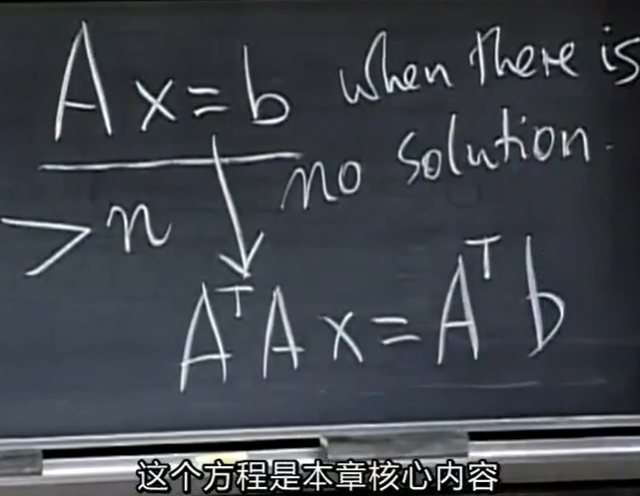 Ax=b when there is
no solution.
> n
AᵀAx=Aᵀb
这个方程是本章核心内容